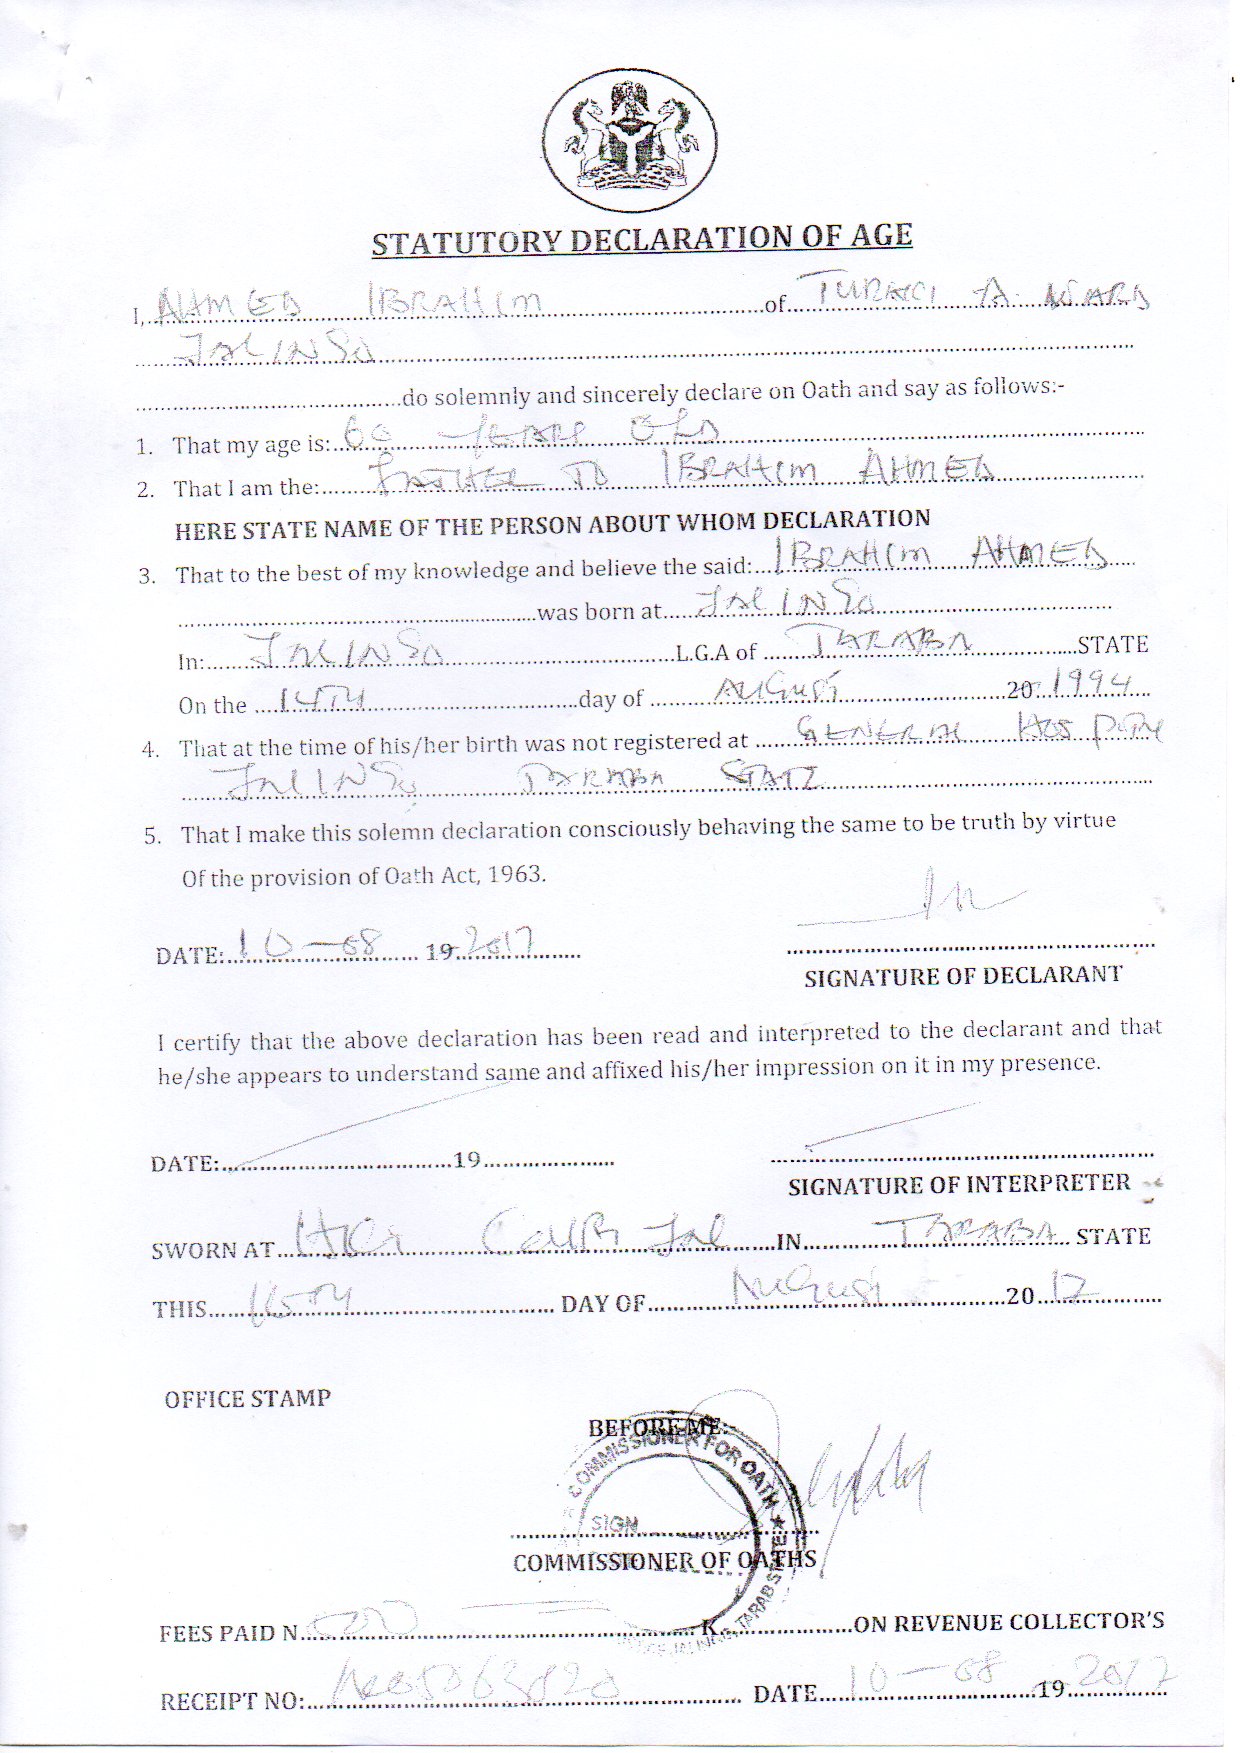 STATUTORY DECLARATION OF AGE
I, AHMED IBRAHIM of TURAKI A. WARD
JALINGO
do solemnly and sincerely declare on Oath and say as follows:-
1. That my age is: 60 YEARS OLD
2. That I am the: FATHER TO IBRAHIM AHMED
HERE STATE NAME OF THE PERSON ABOUT WHOM DECLARATION
3. That to the best of my knowledge and believe the said: IBRAHIM AHMED
was born at JALINGO
In: JALINGO L.G.A of TARABA STATE
On the 14TH day of AUGUST 20 1994
4. That at the time of his/her birth was not registered at GENERAL HOSPITAL
JALINGO TARABA STATE
5. That I make this solemn declaration consciously behaving the same to be truth by virtue
Of the provision of Oath Act, 1963.
DATE: 10-08 19 2017
SIGNATURE OF DECLARANT
I certify that the above declaration has been read and interpreted to the declarant and that
he/she appears to understand same and affixed his/her impression on it in my presence.
DATE: 19
SIGNATURE OF INTERPRETER
SWORN AT JAL IN TARABA STATE
THIS DAY OF AUGUST 20 17
OFFICE STAMP
BEFORE ME:
COMMISSIONER FOR OATH ★
SIGN
JALINGO, TARABA STATE
COMMISSIONER OF OATHS
FEES PAID N 500 K ON REVENUE COLLECTOR'S
RECEIPT NO: DATE 10-08 19 2017